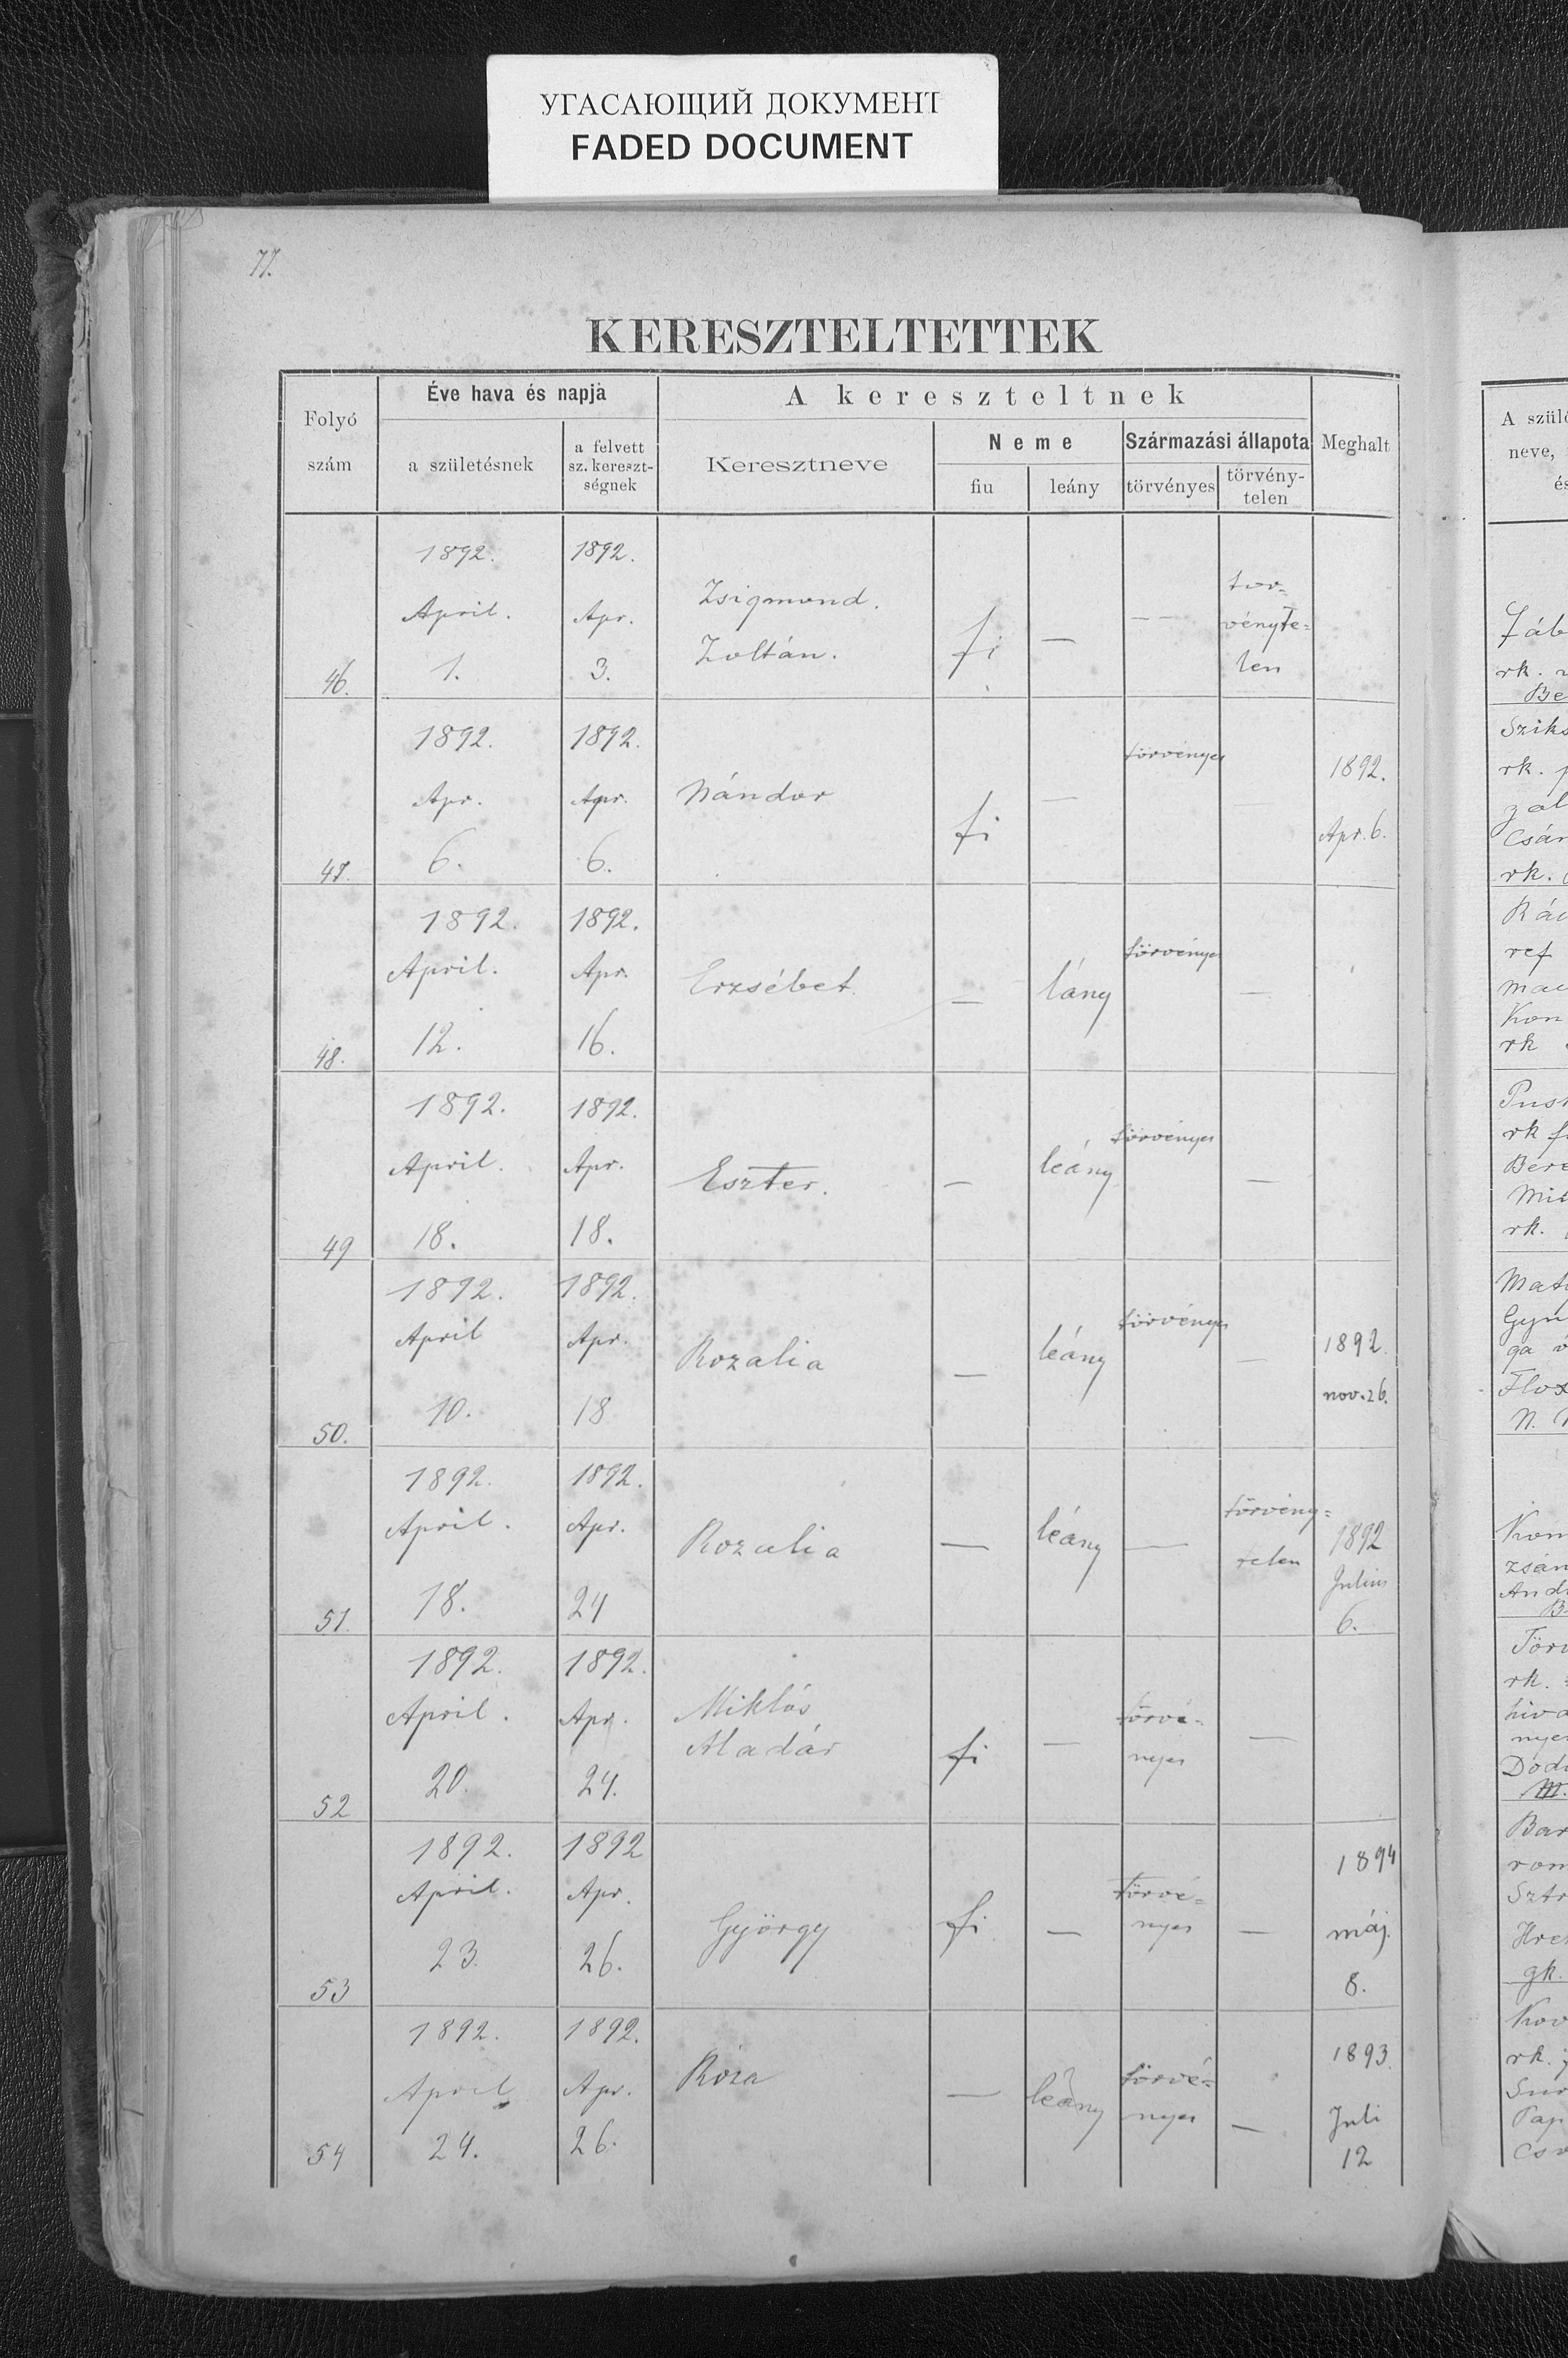 УГАСАЮЩИЙ ДОКУМЕНТ
FADED DOCUMENT
77.
KERESZTELTETTEK
Folyó szám
Éve hava és napja
a születésnek
a felvett sz. kereszt-ségnek
A kereszteltnek
Keresztneve
Neme
fiu
leány
Származási állapota
törvényes
törvény-telen
Meghalt
46. 1892. April. 1. 1892. Apr. 3. Zsigmond. Zoltán. fi — — — tör-vényte=len
47. 1892. Apr. 6. 1892. Apr. 6. Nándor fi — törvényes — 1892. Apr. 6.
48. 1892. April. 12. 1892. Apr. 16. Erzsébet — lány törvényes —
49 1892. April. 18. 1892. Apr. 18. Eszter. — leány törvényes —
50. 1892. April 10. 1892. Apr. 18 Rozalia — leány törvényes — 1892. nov. 26.
51. 1892. April. 18. 1892. Apr. 24 Rozalia — leány — törvény=telen 1892 Julius 6.
52 1892. April. 20. 1892. Apr. 24. Miklós Aladár fi — törvé=nyes —
53 1892. April. 23. 1892 Apr. 26. György fi — törvé=nyes — 1894 máj. 8.
54 1892. April 24. 1892. Apr. 26. Róza — leány törvé=nyes — 1893. Juli 12
A szül
neve,
és
rk.
Be
rk.
rk.
ref
Kon
rk
rk
rk.
Kom
rk.
Bar
gk.
rk.
Pap